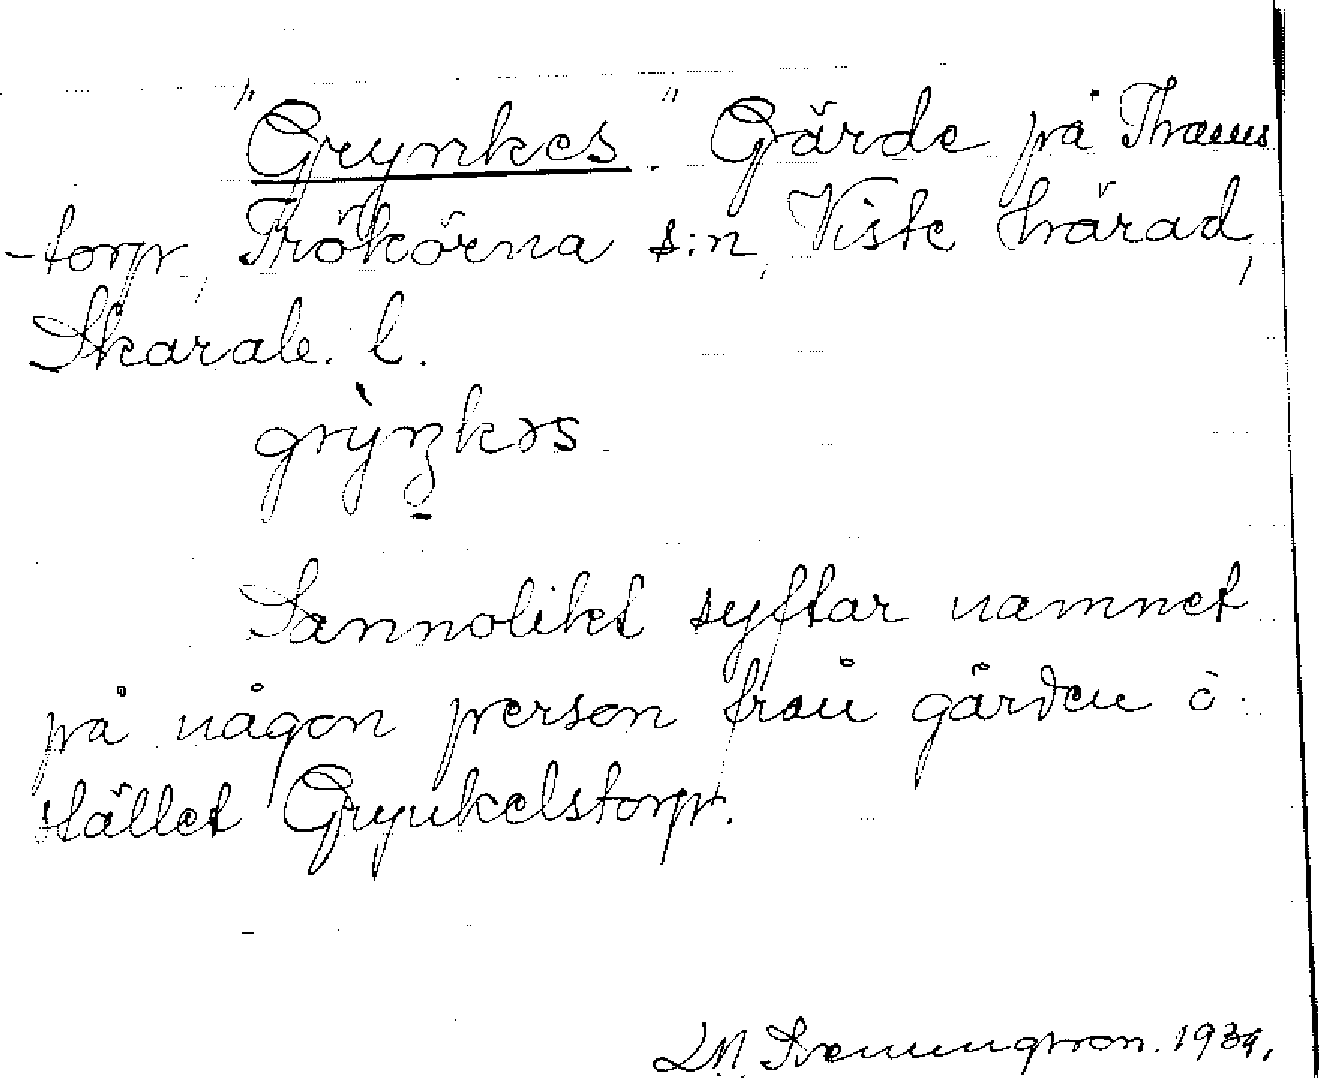 "Grynkes". Gärde på Thams
-torp, Trökörna s:n, Viste härad,
Skarab. l.
grỳŋkəs
Sannolikt syftar namnet
på någon person från gården o.
stället Grynkelstorp.